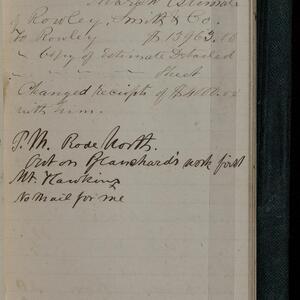 March Estimate
of Rowley, Smith & Co.
To Rowley $13963.16
" Copy of Estimate Detailed
" Sheet
Changed receipts of $400.00
with him.
P.M. Rode North.
Out on Blanchard's work first
Mt. Hawkins
No Mail for me